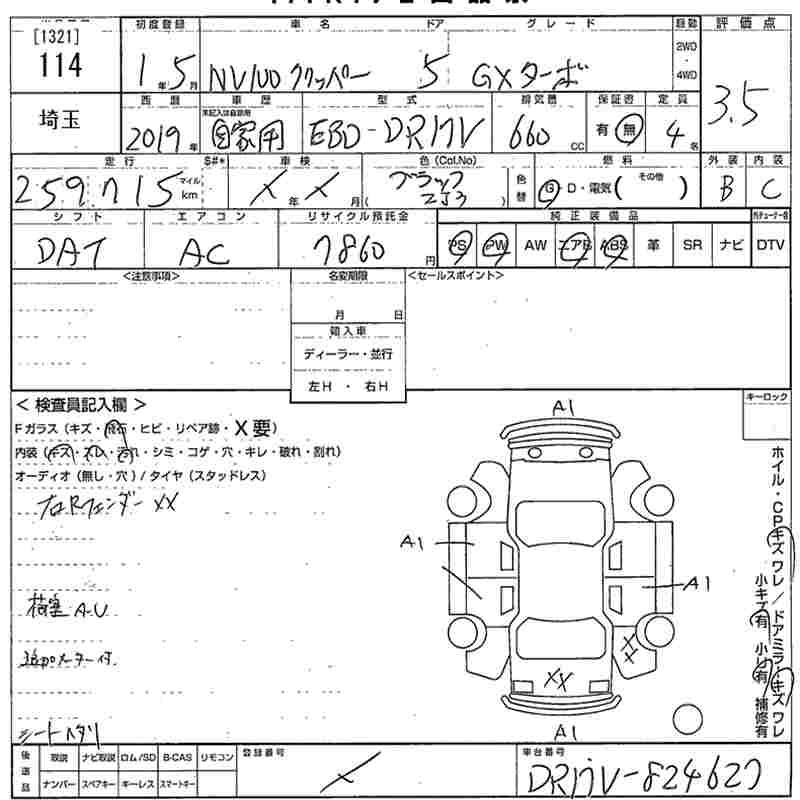 初度登録 車名 ドア グレード 駆動 評価点
[1321]
114
1年5月 NV100クリッパー 5 GXターボ 2WD・4WD 3.5
埼玉
西暦 車歴 型式 排気量 保証書 定員
未記入は自家用
2019年 自家用 EBD-DR17V 660cc 有 無 4名
走行 S#* 車検 色(Col.No) 燃料 外装 内装
マイル km 年 月 ブラック ZJ3 色替 G・D・電気( その他 ) B C
シフト エアコン リサイクル預託金 純正装備品
DAT AC 7860円 PS PW AW エアB ABS 革 SR ナビ DTV
<注意事項> 名変期限 <セールスポイント>
月 日
輸入車
ディーラー・並行
左H・右H
<検査員記入欄> キーロック
Fガラス(キズ・飛石・ヒビ・リペア跡・X要)
内装(キズ・スレ・汚れ・シミ・コゲ・穴・キレ・破れ・割れ)
オーディオ(無し・穴)/タイヤ(スタッドレス)
右Rフェンダー XX
荷室 A.U
シートヘタリ
A1
A1
A1
XX
XX
A1
ホイル・CPキズワレ/ドアミラーキズワレ
小キズ有 小凹有 補修有
後送品 取説 ナビ取説 ロム/SD B-CAS リモコン
ナンバー スペアキー キーレス スマートキー
登録番号 車台番号
DR17V-824627